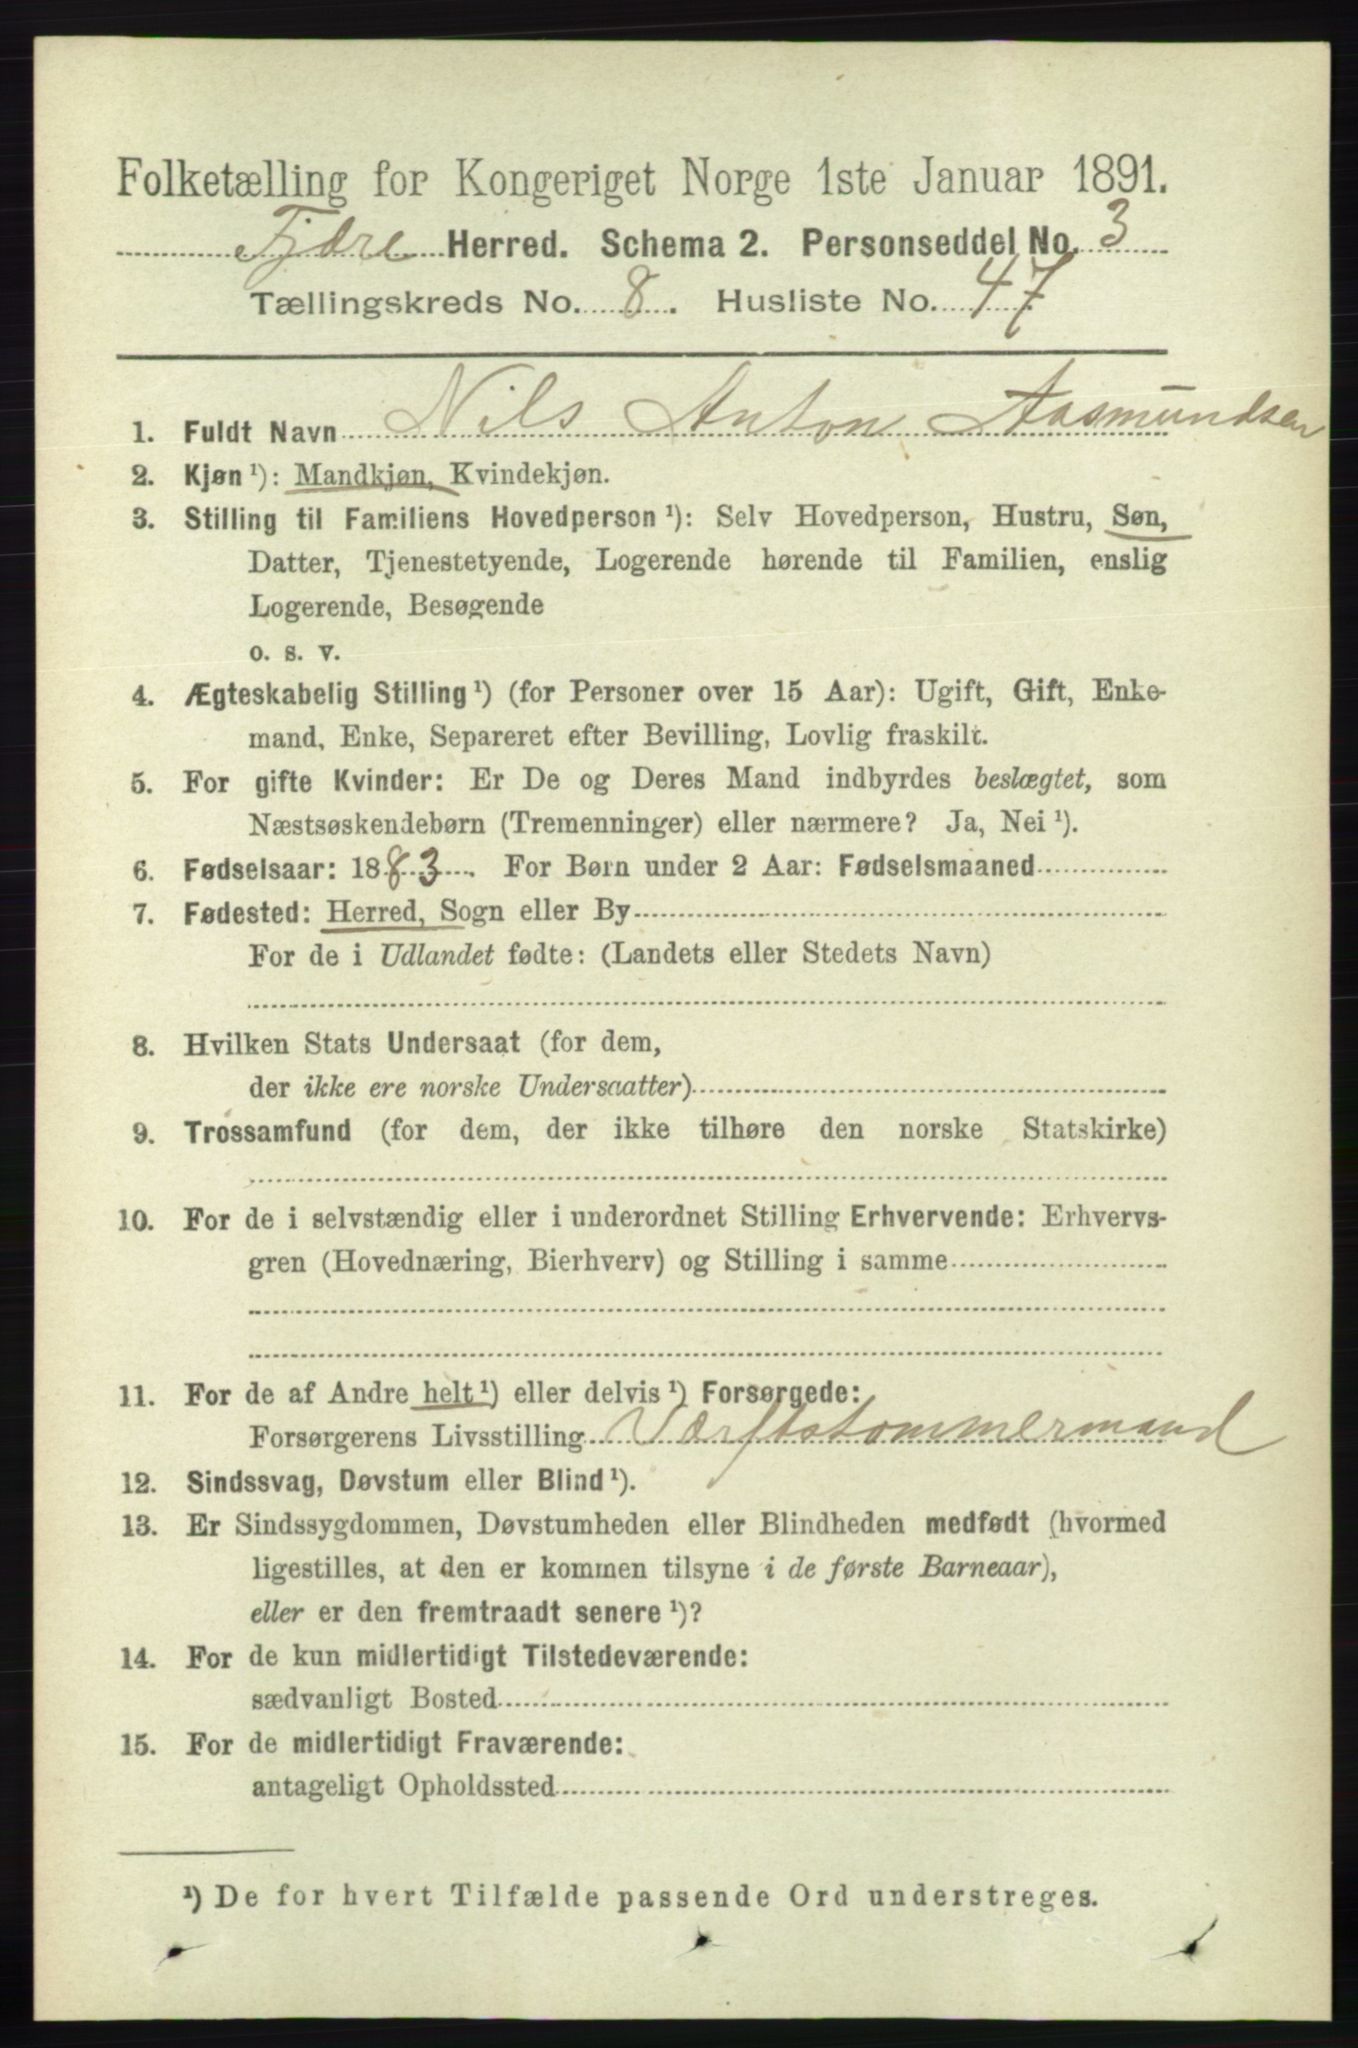 Folketælling for Kongeriget Norge 1ste Januar 1891.
Fjære Herred. Schema 2. Personseddel No. 3
Tællingskreds No. 8. Husliste No. 47
1. Fuldt Navn Nils Anton Aasmundsen
2. Kjøn ¹): Mandkjøn, Kvindekjøn.
3. Stilling til Familiens Hovedperson ¹): Selv Hovedperson, Hustru, Søn,
Datter, Tjenestetyende, Logerende hørende til Familien, enslig
Logerende, Besøgende
o. s. v.
4. Ægteskabelig Stilling ¹) (for Personer over 15 Aar): Ugift, Gift, Enke-
mand, Enke, Separeret efter Bevilling, Lovlig fraskilt.
5. For gifte Kvinder: Er De og Deres Mand indbyrdes beslægtet, som
Næstsøskendebørn (Tremenninger) eller nærmere? Ja, Nei ¹).
6. Fødselsaar: 1883. For Børn under 2 Aar: Fødselsmaaned
7. Fødested: Herred, Sogn eller By
For de i Udlandet fødte: (Landets eller Stedets Navn)
8. Hvilken Stats Undersaat (for dem,
der ikke ere norske Undersaatter)
9. Trossamfund (for dem, der ikke tilhøre den norske Statskirke)
10. For de i selvstændig eller i underordnet Stilling Erhvervende: Erhvervs-
gren (Hovednæring, Bierhverv) og Stilling i samme
11. For de af Andre helt ¹) eller delvis ¹) Forsørgede:
Forsørgerens Livsstilling Værftstømmermand
12. Sindssvag, Døvstum eller Blind ¹).
13. Er Sindssygdommen, Døvstumheden eller Blindheden medfødt (hvormed
ligestilles, at den er kommen tilsyne i de første Barneaar),
eller er den fremtraadt senere ¹)?
14. For de kun midlertidigt Tilstedeværende:
sædvanligt Bosted
15. For de midlertidigt Fraværende:
antageligt Opholdssted
¹) De for hvert Tilfælde passende Ord understreges.